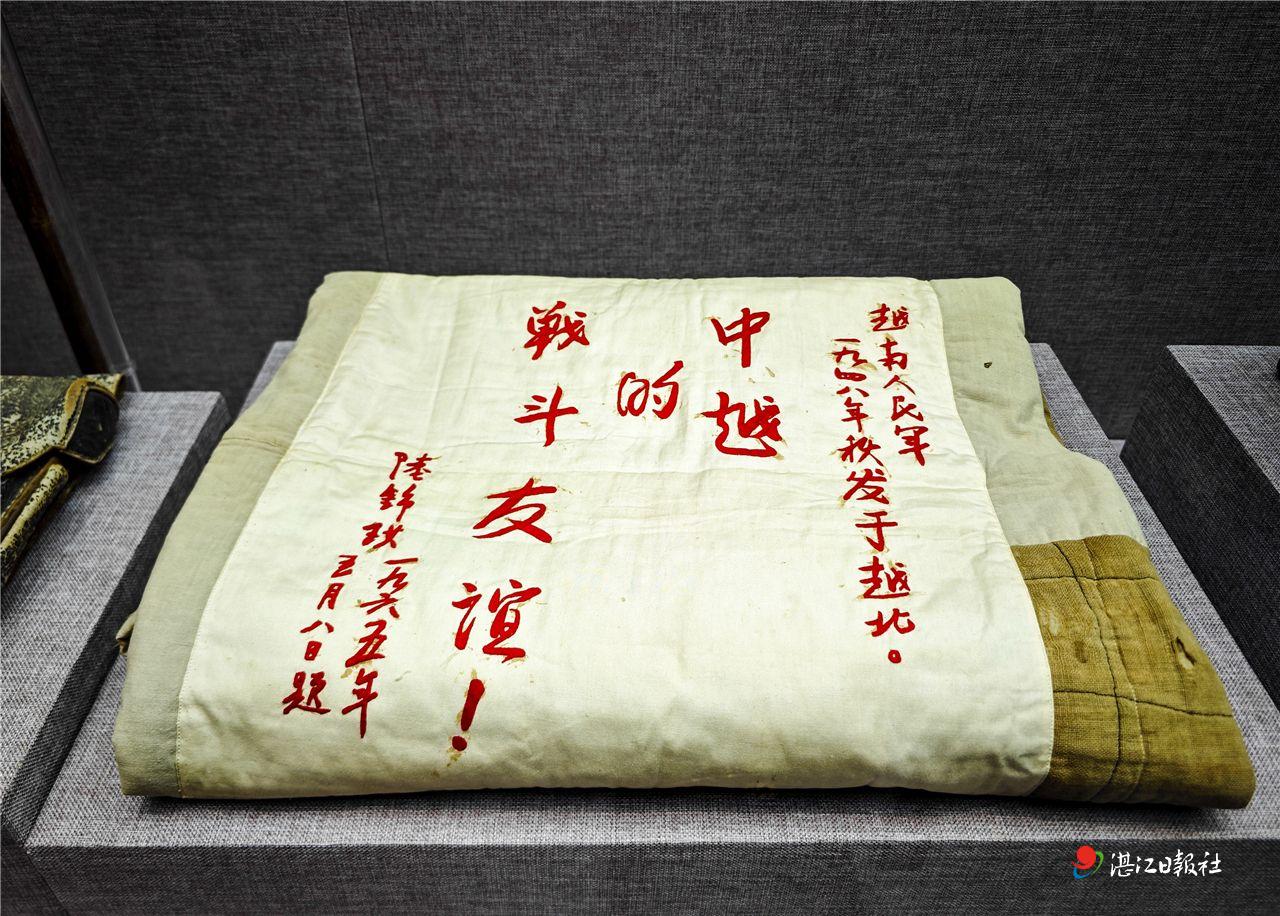 越南人民军
一九四八年秋发于越北。
中越
的
战斗友谊！
陆锦玫一九六五年
三月八日题
湛江日報社